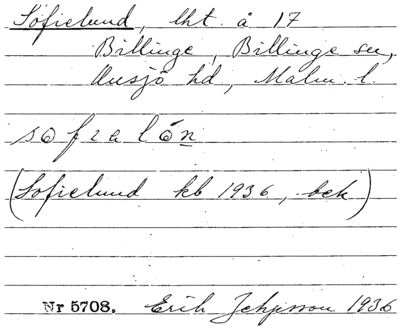 Sofielund, lht. å 17
Billinge, Billinge sn,
Onsjö hd, Malm. l.
sofealón
(Sofielund kb 1936, bek)
Nr 5708. Erik Jeppsson 1936